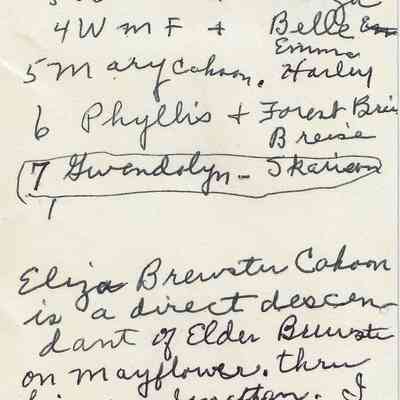 4 W m F + Belle
Emma
5 Mary Cahoon. Harley
6 Phyllis + Forest
Breise
7 Gwendolyn -
Eliza Brewster Cahoon
is a direct descen-
dant of Elder Brewste
on Mayflower. thru
I